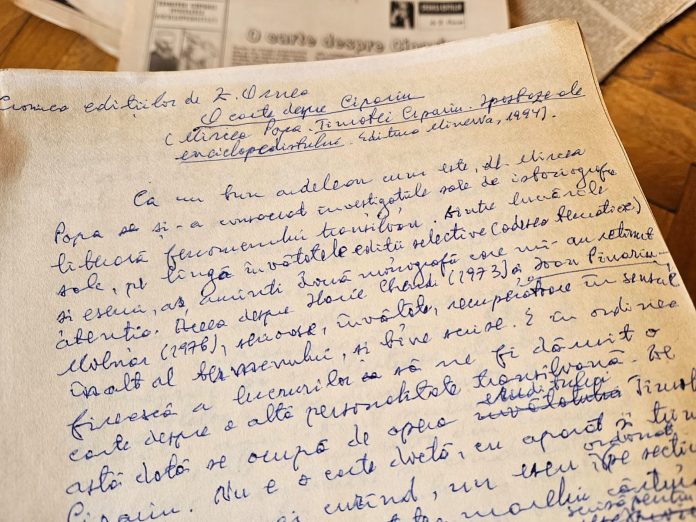 O carte despre Cipariu
Cronica edițiilor de Z. Ornea
O carte despre Cipariu
(Mircea Popa. Timotei Cipariu. Ipostazele
enciclopedistului. Editura Minerva, 1994).
Ca un bun ardelean cum este, dl. Mircea
Popa și-a consacrat investigațiile sale de istoriografie
literară fenomenului transilvan. Dintre lucrările
sale, pe lîngă învățatele ediții selective (adesea tematice)
și eseuri, aș aminti două monografii care mi-au reținut
atenția. Aceea despre Ilarie Chendi (1973) și Ioan Pinariu-
Molnar (1976), serioase, învățate, recuperatoare în sensul
înalt al termenului, și bine scrise. E în ordinea
firească a lucrurilor să ne fi dăruit o
carte despre o altă personalitate transilvană. De
astă dată se ocupă de opera eruditului Timotei
Cipariu. Nu e o carte doctă, cu aparat și
curînd, un eseu, pe secții
ordonat,
marelui cărtur